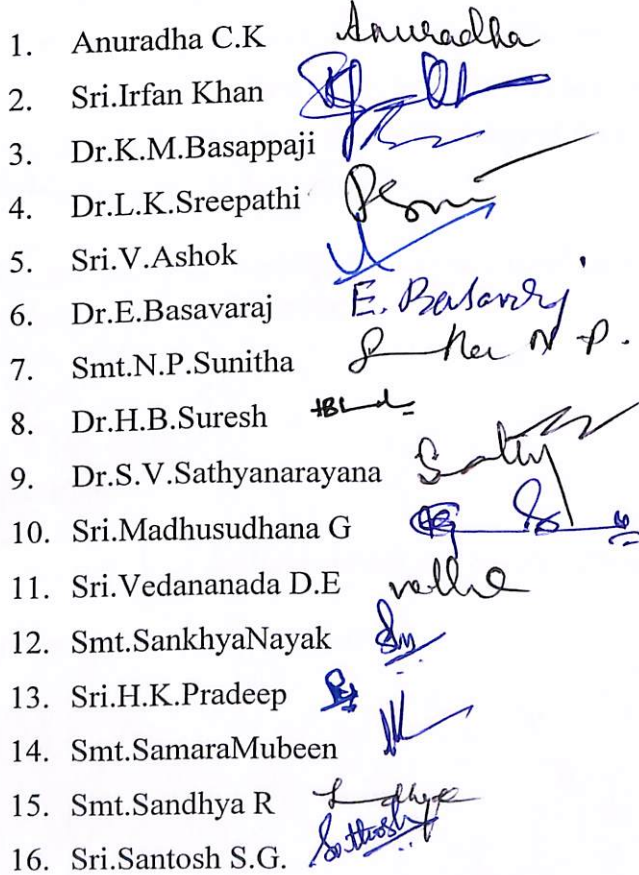 1. Anuradha C.K Anuradha
2. Sri.Irfan Khan
3. Dr.K.M.Basappaji
4. Dr.L.K.Sreepathi
5. Sri.V.Ashok
6. Dr.E.Basavaraj E. Basavaraj
7. Smt.N.P.Sunitha N.P.
8. Dr.H.B.Suresh
9. Dr.S.V.Sathyanarayana
10. Sri.Madhusudhana G
11. Sri.Vedananada D.E
12. Smt.SankhyaNayak
13. Sri.H.K.Pradeep
14. Smt.SamaraMubeen
15. Smt.Sandhya R
16. Sri.Santosh S.G.